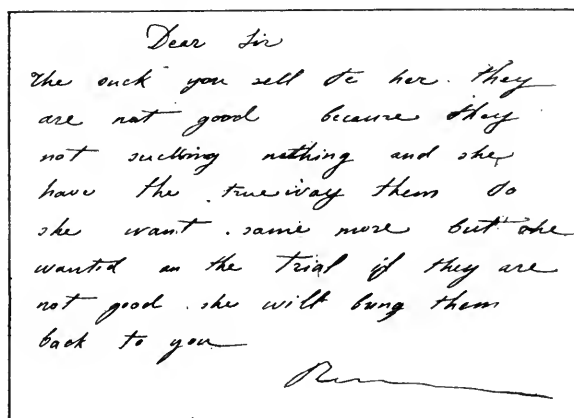 Dear Sir
The suck you sell to her. they
are not good because they
not sucking nothing and she
have the trueway them so
she want some more but she
wanted on the trial if they are
not good she will bung them
back to you